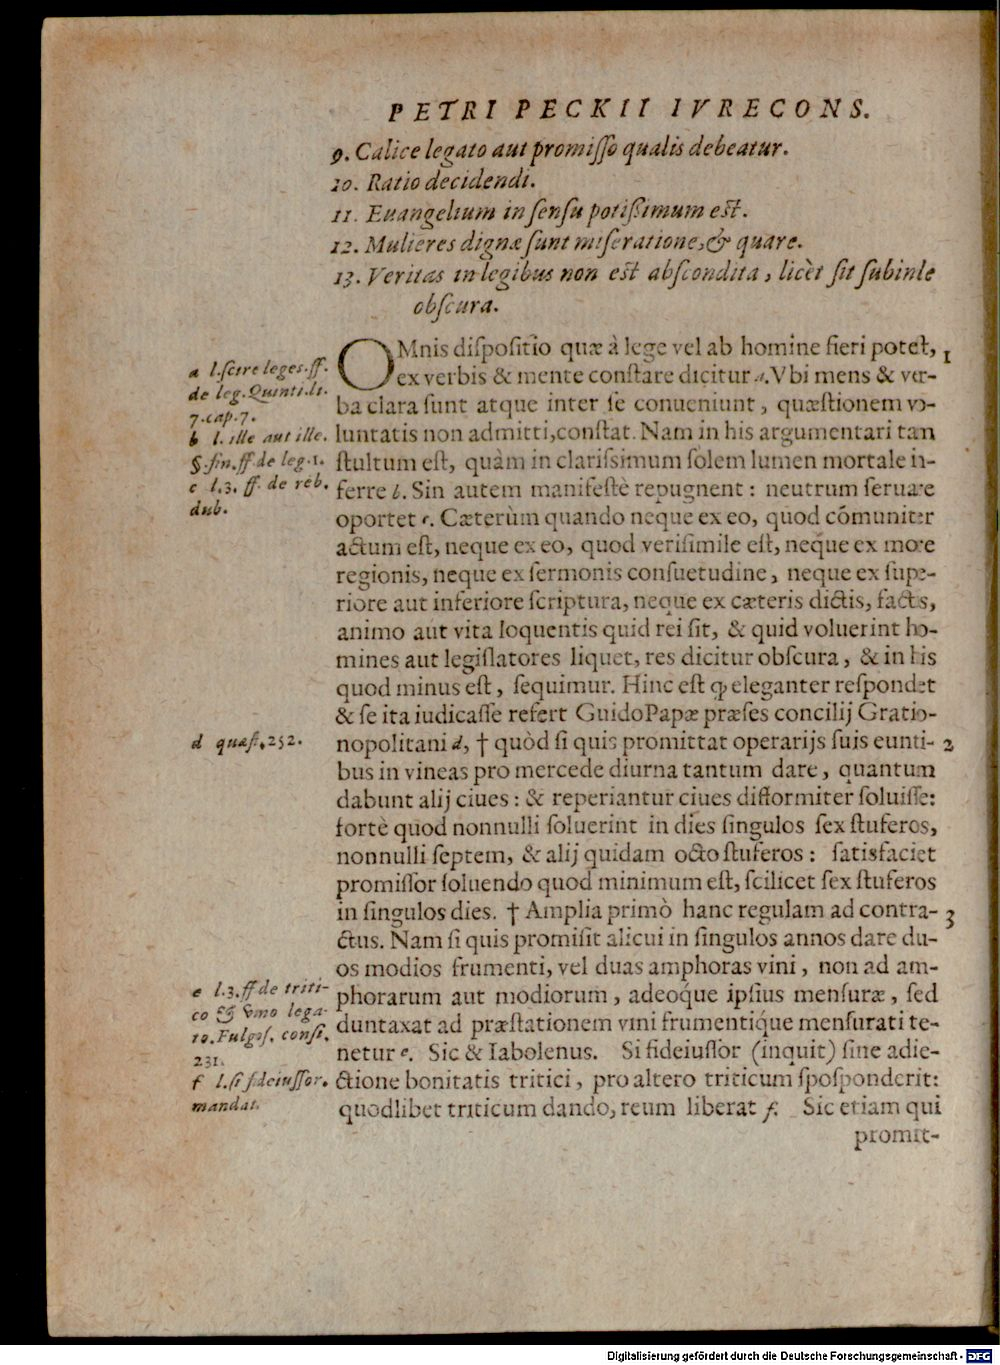 PETRI PECKII IVRECONS.
9. Calice legato aut promisso qualis debeatur.
10. Ratio decidendi.
11. Euangelium in sensu potissimum est.
12. Mulieres dignæ sunt miseratione, & quare.
13. Veritas in legibus non est abscondita, licèt sit subinde
obscura.
OMnis dispositio quæ à lege vel ab homine fieri potest, 1
ex verbis & mente constare dicitur a. Vbi mens & ver-
ba clara sunt atque inter se conueniunt, quæstionem vo-
luntatis non admitti, constat. Nam in his argumentari tam
stultum est, quàm in clarissimum solem lumen mortale in-
ferre b. Sin autem manifestè repugnent: neutrum seruare
oportet c. Cæterùm quando neque ex eo, quod cōmuniter
actum est, neque ex eo, quod verisimile est, neque ex more
regionis, neque ex sermonis consuetudine, neque ex supe-
riore aut inferiore scriptura, neque ex cæteris dictis, factis,
animo aut vita loquentis quid rei sit, & quid voluerint ho-
mines aut legislatores liquet, res dicitur obscura, & in his
quod minus est, sequimur. Hinc est ꝙ eleganter respondet
& se ita iudicasse refert Guido Papæ præses concilij Gratio-
nopolitani d, † quòd si quis promittat operarijs suis eunti- 2
bus in vineas pro mercede diurna tantum dare, quantum
dabunt alij ciues: & reperiantur ciues difformiter soluisse:
fortè quod nonnulli soluerint in dies singulos sex stuferos,
nonnulli septem, & alij quidam octo stuferos: satisfaciet
promissor soluendo quod minimum est, scilicet sex stuferos
in singulos dies. † Amplia primò hanc regulam ad contra- 3
ctus. Nam si quis promisit alicui in singulos annos dare du-
os modios frumenti, vel duas amphoras vini, non ad am-
phorarum aut modiorum, adeoq́ue ipsius mensuræ, sed
duntaxat ad præstationem vini frumentiq́ue mensurati te-
netur e. Sic & Iabolenus. Si fideiussor (inquit) sine adie-
ctione bonitatis tritici, pro altero triticum spospondcrit:
quodlibet triticum dando, reum liberat f. Sic etiam qui
promit-
a l. scire leges. ff.
de leg. Quinti. li.
7. cap. 7.
b l. ille aut ille.
§. fin. ff de leg. 1.
c l. 3. ff. de reb.
dub.
d quæst. 252.
e l. 3. ff de triti-
co & vino lega-
to. Fulgos. consi.
231.
f l. si fideiussor.
mandat.
Digitalisierung gefördert durch die Deutsche Forschungsgemeinschaft - DFG